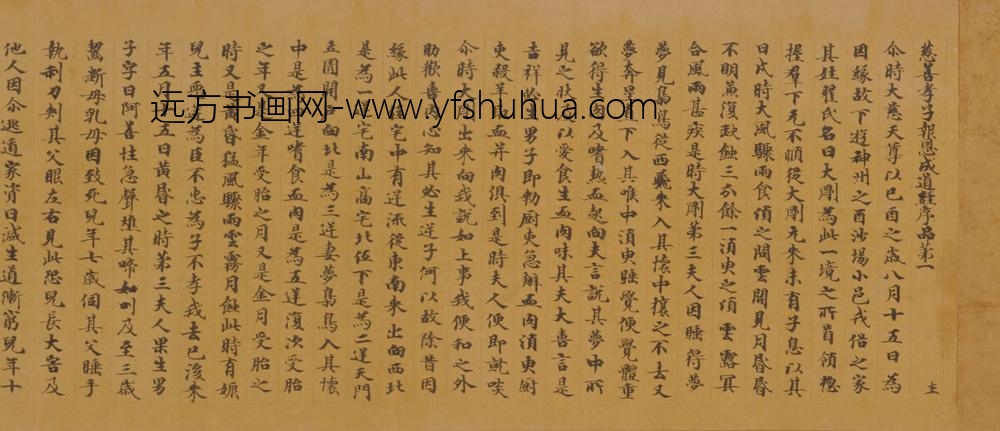 慈善孝子報恩成道經序品第一
尒時大慈天尊以巳酉之歲八月十五日為
因緣故下遊神州之酉沙場小邑戎俗之家
其姓翟氏名曰大剛為此一境之所首領揔
握羣下无不順從大剛先來未有子息以其
日戌時大風驟雨食頃之間雲開見月昏昏
不明兼復缺蝕三分餘一須臾之頃雲霧冥
合風雨甚疾是時大剛第三夫人因睡得夢
夢見鳥從西飛來入其懷中攘之不去又
夢奔星下入其喉中須臾睡覺便覺體重
欲得生肉及嗜熱血矣向夫言說其夢中所
見之狀以愛食生血肉味其夫大喜言是
吉祥生男子即勑厨吏急辦血肉須臾厨
吏殺羊血并肉俱到是時夫人便即就啖
尒時大出來向我說如上事我便和之外
助歡喜心知其必生逆子何以故除昔因
緣此人宅中有逆流從東南來出向西北
是為一宅南山高宅北伍下是為二逆天門
五圓向北是為三逆妻夢鳥入其懷
中是逆嗜食血肉是為五逆復次受胎
之年又金年受胎之月又是金月受胎之
時又是昏猛風驟雨雲霧月蝕此時有娠
兒主為臣不忠為子不孝我去巳後朱
年五月五日黃昏之時第三夫人果生男
子字曰阿善性急聲雄其啼如叫及至三歲
齧斷母乳母因致死兒年七歲伺其父睡手
執利刀刺其父眼左右見此恐兒長大害及
他人因尒逃道家資日減生道漸窮兒年十
远方书画网-www.yfshuhua.com